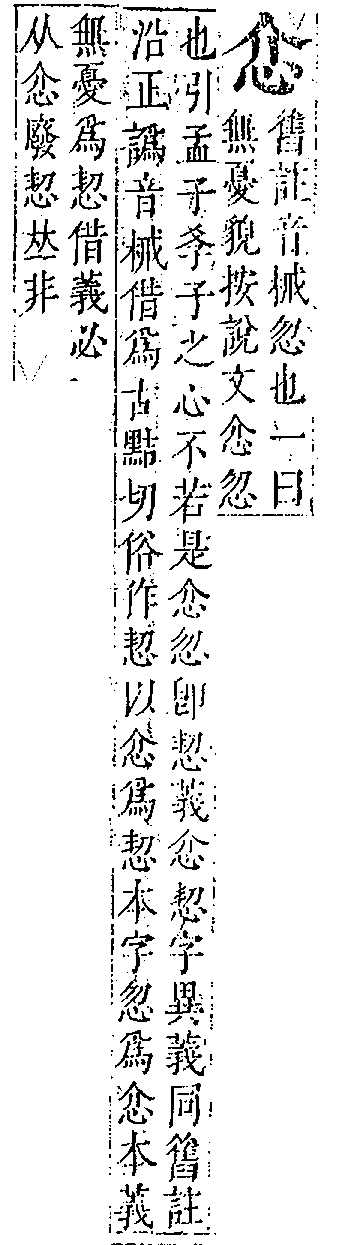 忿
舊註音械忽也一曰
無憂貌按說文忿忽
也引孟子孝子之心不若是忿忽卽恝義忿恝字異義同舊註
沿正譌音械借爲古黠切俗作恝以忿爲恝本字忽爲忿本義
無憂爲恝借義必
从忿廢恝𠀤非